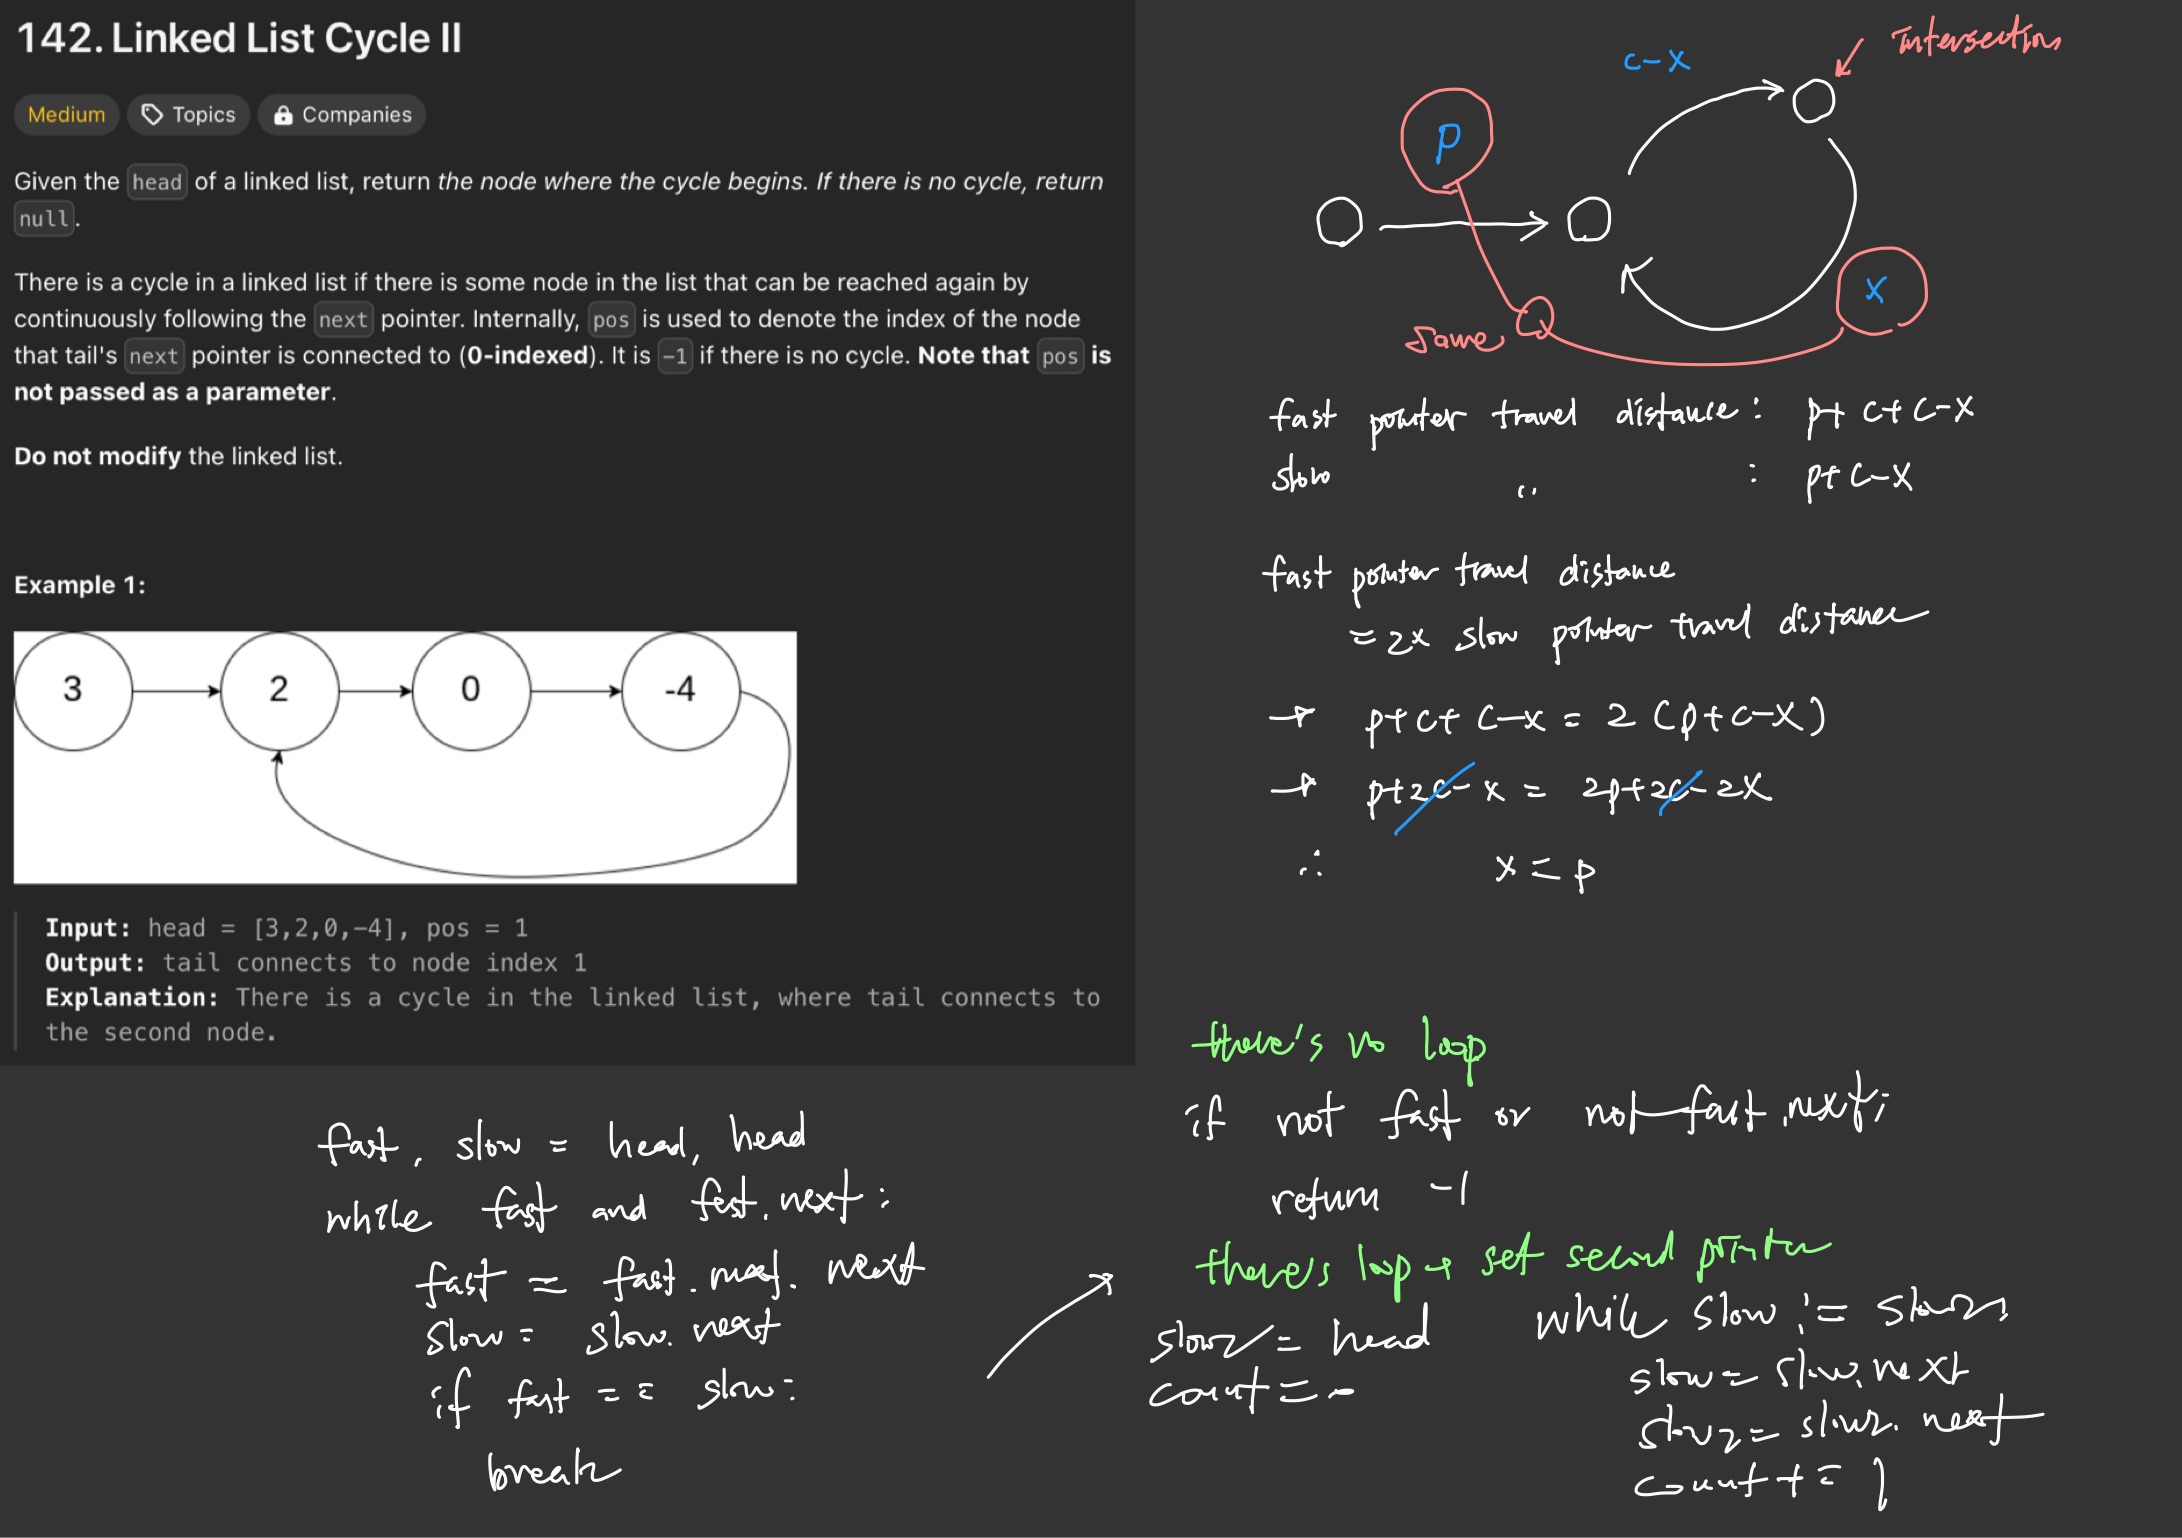 142. Linked List Cycle II
Medium Topics Companies
Given the head of a linked list, return the node where the cycle begins. If there is no cycle, return
null.
There is a cycle in a linked list if there is some node in the list that can be reached again by
continuously following the next pointer. Internally, pos is used to denote the index of the node
that tail's next pointer is connected to (0-indexed). It is -1 if there is no cycle. Note that pos is
not passed as a parameter.
Do not modify the linked list.
Example 1:
3 2 0 -4
Input: head = [3,2,0,-4], pos = 1
Output: tail connects to node index 1
Explanation: There is a cycle in the linked list, where tail connects to
the second node.
Intersection
c-x
p
x
Same
fast pointer travel distance: p+c+c-x
slow " : p+c-x
fast pointer travel distance
= 2x slow pointer travel distance
→ p+c+c-x = 2(p+c-x)
→ p+2c-x = 2p+2c-2x
∴ x = p
fast, slow = head, head
while fast and fast.next:
fast = fast.next.next
slow = slow.next
if fast == slow:
break
there's no loop
if not fast or not fast.next;
return -1
there's loop → set second pointer
slow2 = head
count =
while slow != slow2,
slow = slow.next
slow2 = slow2.next
count += 1